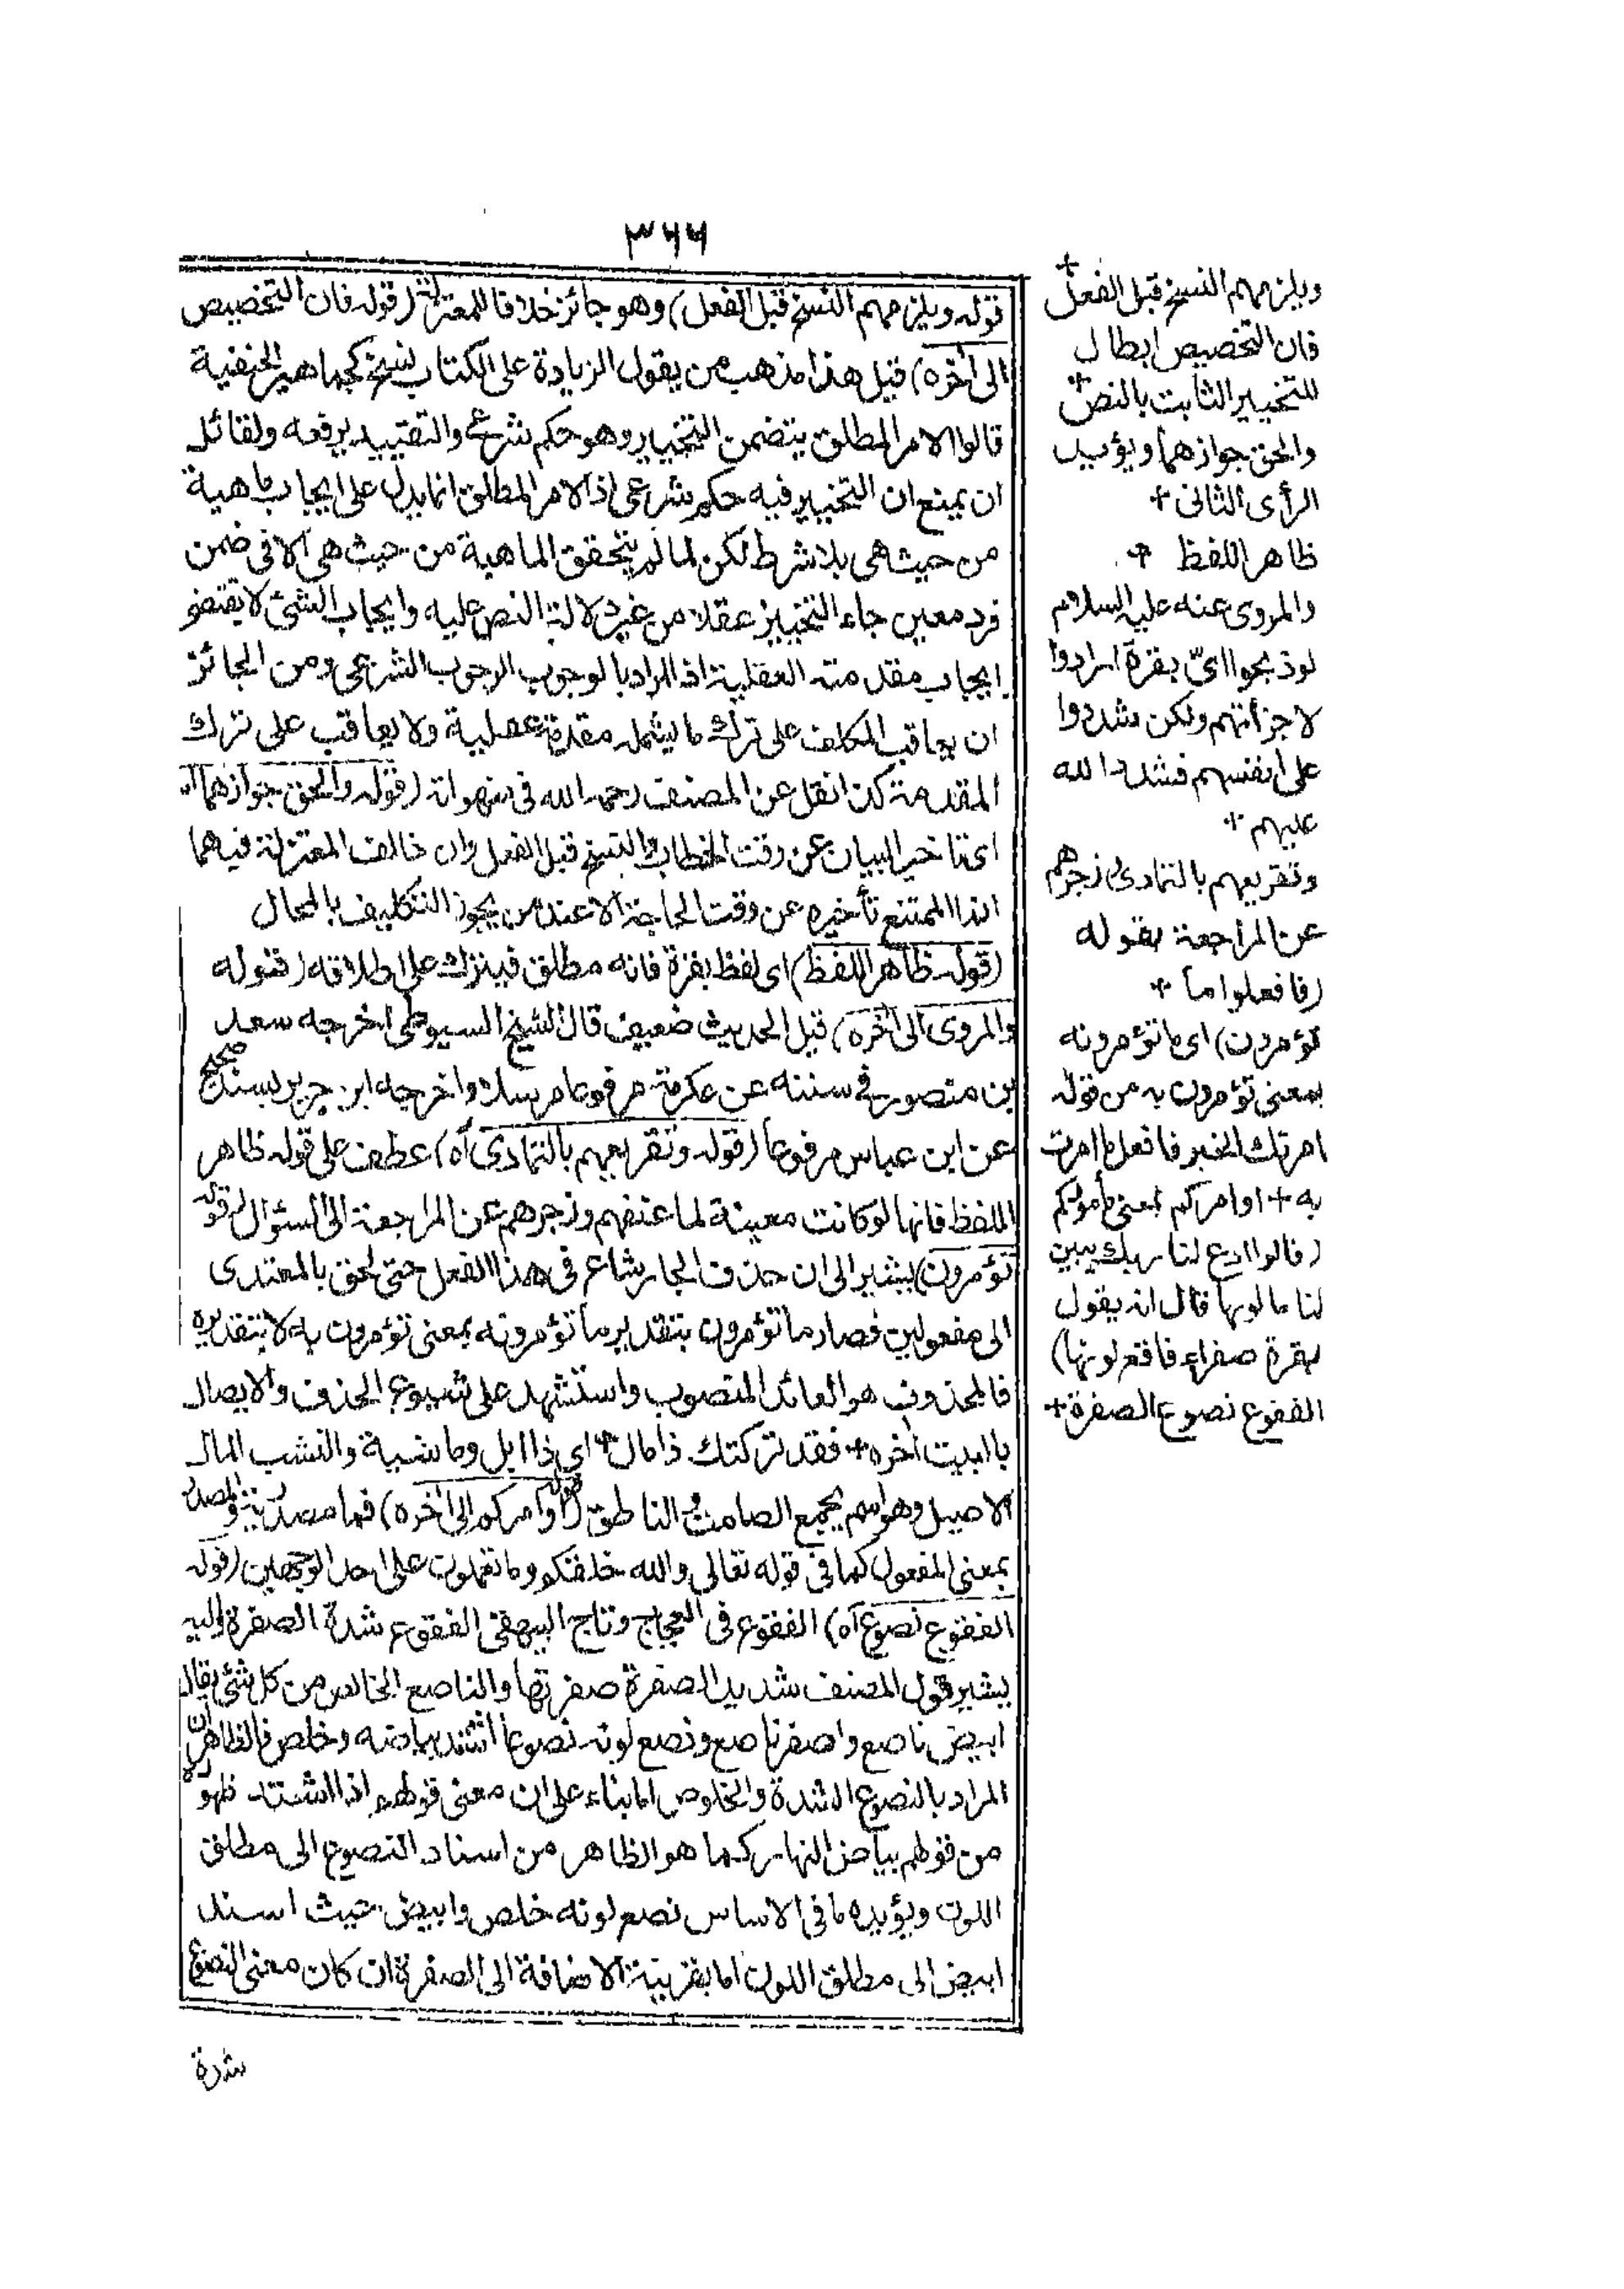 ٣٦٦
قوله ويلزمهم النسخ قبل الفعل) وهو جائز خلافا للمعتزلة (قوله فان التخصيص
الى أخره) قيل هذا مذهب من يقول الزيادة على الكتاب نسخ كجماهير الحنفية
قالوا الامر المطلق يتضمن التخيير وهو حكم شرعي والتقييد يرفعه ولقائل
ان يمنع ان التخيير فيه حكم شرعي اذ الامر المطلق انما يدل على ايجاب ماهية
من حيث هى بلا شرط لكن لما لم يتحقق الماهية من حيث هى الا فى ضمن
فرد معين جاء التخيير عقلا من غير دلالة النص عليه وايجاب الشئ لا يقتضى
ايجاب مقدمته العقلية اذ المراد بالوجوب الوجوب الشرعي ومن الجائز
ان يعاقب المكلف على ترك ما يشمله مقدمة عقلية ولا يعاقب على ترك
المقدمة كذا نقل عن المصنف رحمه الله فى منهواته (قوله والحق جوازهما اه
اى تاخير البيان عن وقت الخطاب والنسخ قبل الفعل وان خالف المعتزلة فيهما
انما الممتنع تأخيره عن وقت الحاجة الا عند من يجوز التكليف بالمحال
(قوله ظاهر اللفظ) اى لفظ بقرة فانه مطلق فيترك على اطلاقه (قوله
والمروى الى أخره) قيل الحديث ضعيف قال الشيخ السيوطى اخرجه سعد
بن منصور فى سننه عن عكرمة مرفوعا مرسلا واخرجه ابن جرير بسند صحيح
عن ابن عباس مرفوعا (قوله وتقريعهم بالتمادى اه) عطف على قوله ظاهر
اللفظ فانها لو كانت معينة لما عنفهم وزجرهم عن المراجعة الى السئوال (قوله
تؤمرون) يشير الى ان حذف الجار شاع فى هذا الفعل حتى لحق بالمعتدى
الى مفعولين فصار ما تؤمرون بتقدير ما تؤمرونه بمعنى تؤمرون به لا بتقديره
فالمحذوف هو العائد المنصوب واستشهد على شيوع الحذف والايصال
با البيت أخره + فقد تركتك ذا مال + اى ذا ابل وماشية والنشب المال
الاصيل وهو اسم يجمع الصامت والناطق (قوله او امركم الى أخره) فما مصدرية والمصدر
بمعنى المفعول كما فى قوله تعالى والله خلقكم وما تعملون على احد الوجهين (قوله
الفقوع نصوع اه) الفقوع فى الصحاح وتاج البيهقى الفقوع شدة الصفرة واليه
يشير قول المصنف شديد الصفرة صفرتها والناصع الخالص من كل شئ يقال
ابيض ناصع واصفر ناصع ونصع لونه نصوعا اشتد بياضه وخلص فالظاهر ان
المراد بالنصوع الشدة والخلوص اما بناء على ان معنى قولهم اذا اشتد ظهوره
من قولهم بياض النهار كما هو الظاهر من اسناد النصوع الى مطلق
اللون ويؤيده ما فى الاساس نصع لونه خلص وابيض حيث اسند
ابيض الى مطلق اللون اما بقرينة الاضافة الى الصفرة ان كان معنى النصوع
شدة
ويلزمهم النسخ قبل الفعل +
فان التخصيص ابطال
للتخيير الثابت بالنص +
والحق جوازهما ويؤيد
الرأى الثانى +
ظاهر اللفظ +
والمروى عنه عليه السلام
لوذبحوا اىّ بقرة ارادوا
لاجزأتهم ولكن شددوا
على انفسهم فشدد الله
عليهم +
وتقريعهم بالتمادى وزجرهم
عن المراجعة بقوله
(فافعلوا ما +
تؤمرون) اى ما تؤمرونه
بمعنى تؤمرون به من قوله
امرتك الخير فافعل ما امرت
به + او امركم بمعنى مأموركم
(قالوا ادع لنا ربك يبين
لنا ما لونها قال انه يقول
بقرة صفراء فاقع لونها)
الفقوع نصوع الصفرة +